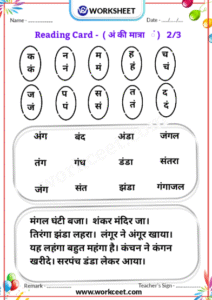 V2 WORKSHEET
Name - Date -
Reading Card - ( अं की मात्रा ं ) 2/3
क न म ह च
कं नं मं हं चं
ज प स त द
जं पं सं तं दं
अंग बंद अंडा जंगल
तंग गंध डंडा संतरा
जंग संत झंडा गंगाजल
मंगल घंटी बजा। शंकर मंदिर जा।
तिरंगा झंडा लहरा। लंगूर ने अंगूर खाया।
यह लहंगा बहुत महंगा है। कंचन ने कंगन
खरीदे। सरपंच डंडा लेकर आया।
Remark - Teacher's Sign -
www.workceet.com